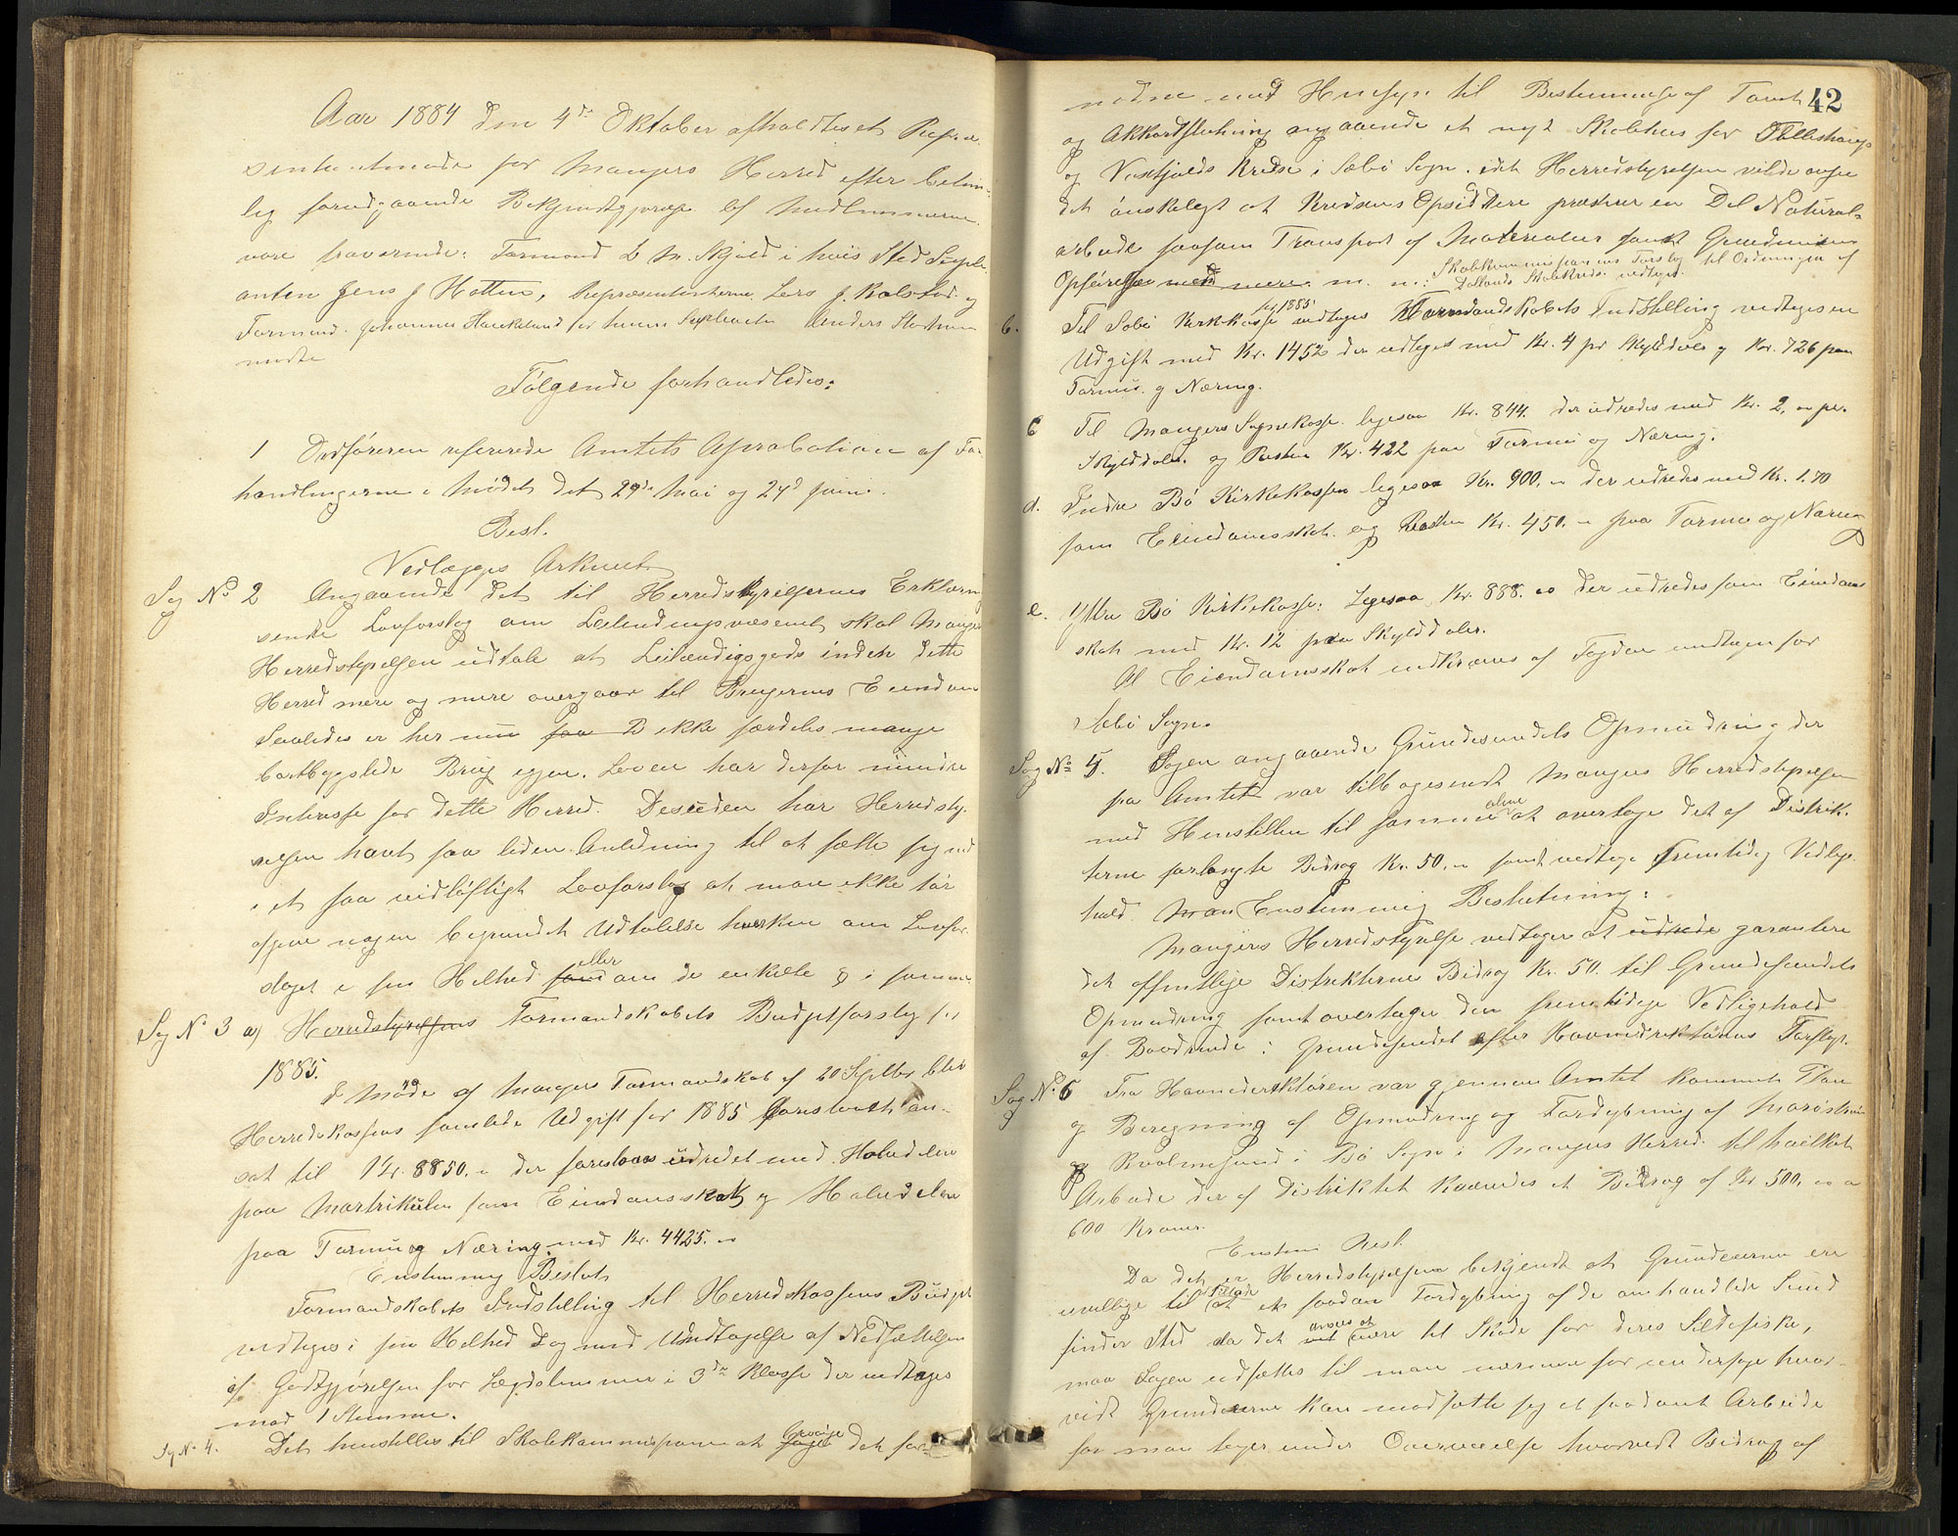 Aar 1884 den 4de Oktober afholdtes et Repræ-
sentantmøde for Mangers Herred efter betim-
lig forudgaaende Bekjendtgjørelse af Medlemmerne
vare fraværende: Formand L M. Skjold i hvis Sted Suple-
anten Jens J Hatten, Repræsentanterne Lars J. Kolstad og
Formand Johannes Haukeland for hvem Supleanten Anders
mødte
Følgende forhandledes:
1 Ordføreren refererede Amtets Aprobation af For-
handlingerne i Mødet det 29de Mai og 24de Juni.
Besl.
Vedlægges Arkivet
Sag No 2 Angaaende det til Herredstyrelsernes Erklæring
sendte Lovforslag om Leilendingsvæsenet skal Manger
Herredstyrelsen udtale at Leilændigsgods inden dette
Herred mere og mere overgaar til Brugernes Eiendom
Saaledes er her nu faa ikke særdeles mange
bortbygslede Brug igjen. Loven har derfor mindre
Interesse for dette Herred. Desuden har Herredsty-
relsen havt saa liden Anledning til at sætte sig ind
i et saa vidløftigt Lovforslag at man ikke tør
afgive nogen begrundet Udtalelse hverken om Lovfor-
slaget i sin Helhed eller om de enkelte § i samme
Sag No 3 a) Herredstyrelsens Formandskabets Budgetforslag for
1885.
I Møde af Mangers Formandskab af 20 Septbr blev
Herredskassens samlede Udgift for 1885 foreslaaet an-
sat til Kr. 8850,- der foreslaaes udredet med Halvdelen
paa Martrikulen som Eiendomsskat og Halvdelen
paa Formue og Næring med Kr. 4425.-
Enstemmig Beslut
Formandskabets Indstilling til Herredskassens Budget
vedtages i sin Helhed dog med Undtagelse af Nedsættelsen
af Godtgjørelsen for Lægdslemmer i 3die Klasse der vedtages
mod 1 Stemme.
Sag No 4. Det henstilles til Skolekommissionen at det for-
42
nødne med Hensyn til Bestemmelse af Tomt
og Akkordslutning angaaende et nyt Skolehus for
og Vestfjelds Kreds i Sæbø Sogn. idet Herredstyrelsen vilde ansee
det ønskeligt at Kredsens Opsiddere præsterer en Del Natural-
arbeide saasom Transport af Materialer samt Grundmurens
Opførelse med mere m. m. Skolekommissionens Forslag til Ordningen af
Skolekreds vedtages.
b. Til Sæbø Kirkekasse for 1885 vedtages Formandskabets Indstilling vedtages en
Udgift med Kr. 1452 der udlignes med Kr. 4 pr Skylddaler og Kr. 726 paa
Formue og Næring.
c Til Mangers Sognekasse ligesaa Kr. 844. der udredes med Kr. 2,- pr.
Skylddaler og Resten Kr. 422 paa Formue og Næring.
d. Indre Bø Kirkekassen ligesaa Kr. 900,- der udredes med Kr. 1.70
som Eiendomsskat og Resten Kr. 450.- paa Formue og Næring
e. Yttre Bø Kirkekasse: Ligesaa Kr. 888.00 der udredes som Eiendoms
skat med Kr. 12 paa Skylddaler.
Al Eiendomsskat indkræves af Fogden undtagen for
Sæbø Sogn.
Sag No 5. Sagen angaaende Grundesundets Opmudring der
fra Amtet var tilbagesendt Mangers Herredstyrelse
med Henstillen til samme alene at overtage det af Distrik-
terne forlangte Bidrag Kr. 50,- samt vedtage fremtidig Vedlige-
hold. Man Enstemmig Beslutning:
Mangers Herredstyrelse vedtager at udrede garantere
det offentlige Distrikternes Bidrag Kr. 50. til Grundesundets
Opmudring samt overtager den fremtidige Vedligehold
af Baadrende i Grundesundet efter Havnedirektørens Forslag.
Sag No. 6 Fra Havnedirektøren var gjennem Amtet kommet Plan
og Beregning af Opmudring og Fordybning af
og Kvolmesund i Bø Sogn i Mangers Herred til hvilket
Arbeide der af Distriktet krævedes et Bidrag af Kr 500,00 a
600 Kroner.
Enstem Besl.
Da det er Herredstyrelsen bekjendt at Grundeierne ere
uvillige til at en saadan Fordybning af de omhandlede Sund
finder Sted da det ansees at være til Skade for deres Sildefiske,
maa Sagen udsættes til man nærmere faar undersøge hvor-
vidt Grundeierne kan modsætte sig et saadant Arbeide
før man tager under Overveielse hvorvidt Bidrag af